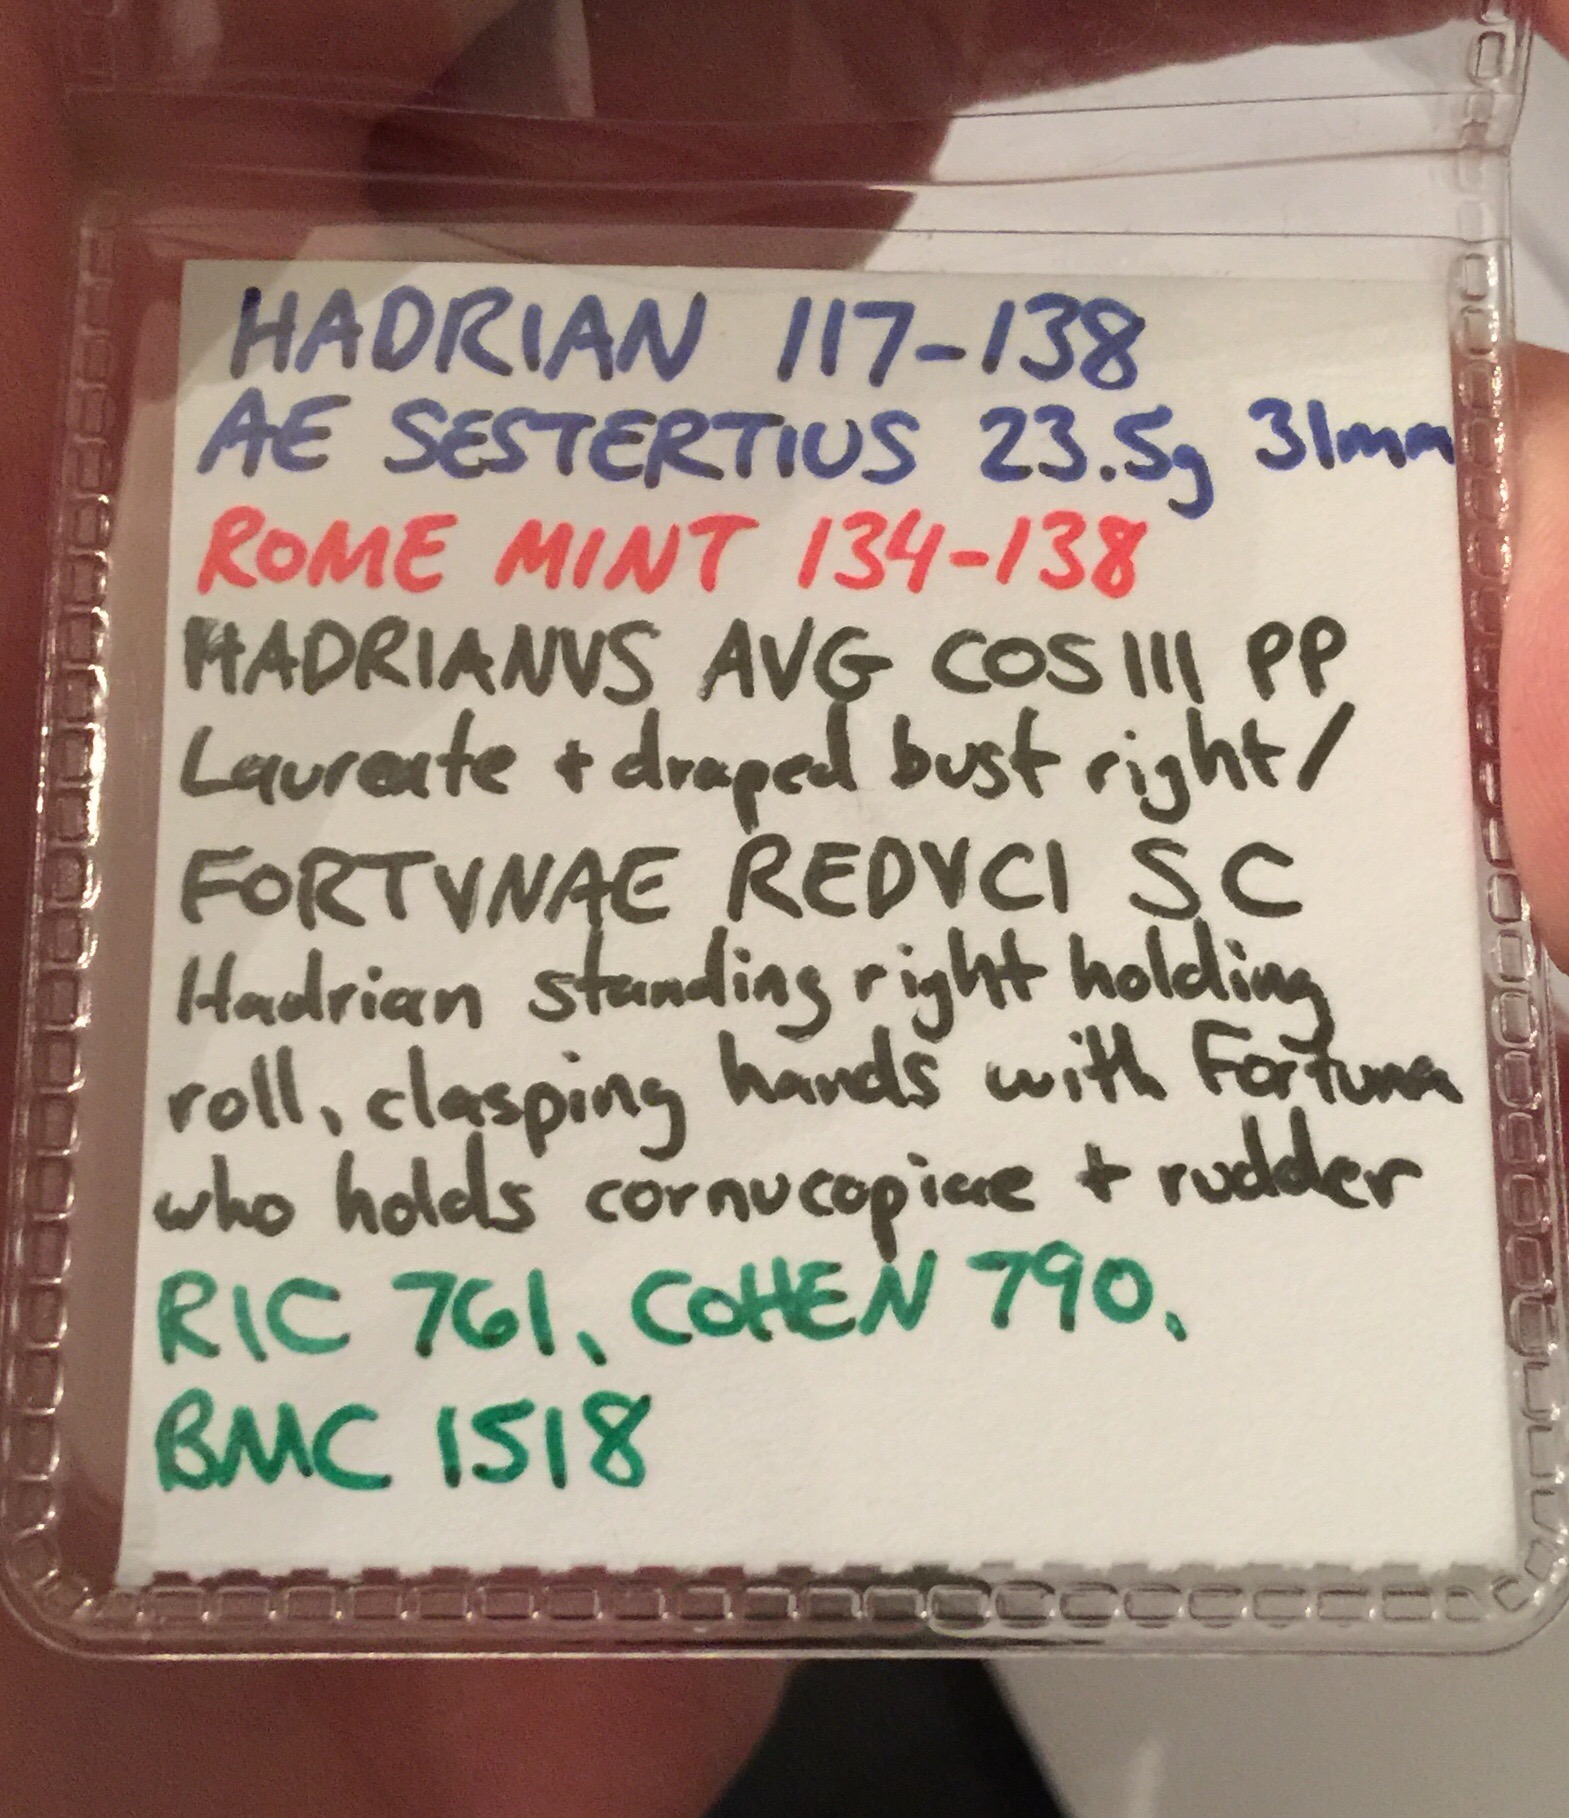 HADRIAN 117-138
AE SESTERTIUS 23.5g 31mm
ROME MINT 134-138
HADRIANVS AVG COS III PP
Laureate + draped bust right/
FORTVNAE REDVCI SC
Hadrian standing right holding
roll, clasping hands with Fortuna
who holds cornucopiae + rudder
RIC 761, COHEN 790,
BMC 1518